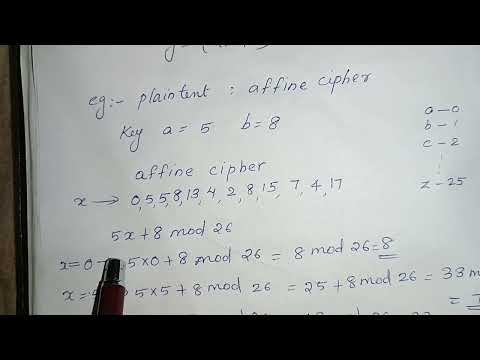 eg:- plaintent : affine cipher
Key a = 5 b = 8
a – 0
b – 1
c – 2
z – 25
affine cipher
x → 0,5,5,8,13,4,2,8,15,7,4,17
5x + 8 mod 26
x = 0 5 × 0 + 8 mod 26 = 8 mod 26 = 8
x = 5 × 5 + 8 mod 26 = 25 + 8 mod 26 = 33 m
=